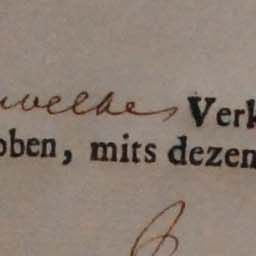 welke Verk
bben, mits dezen